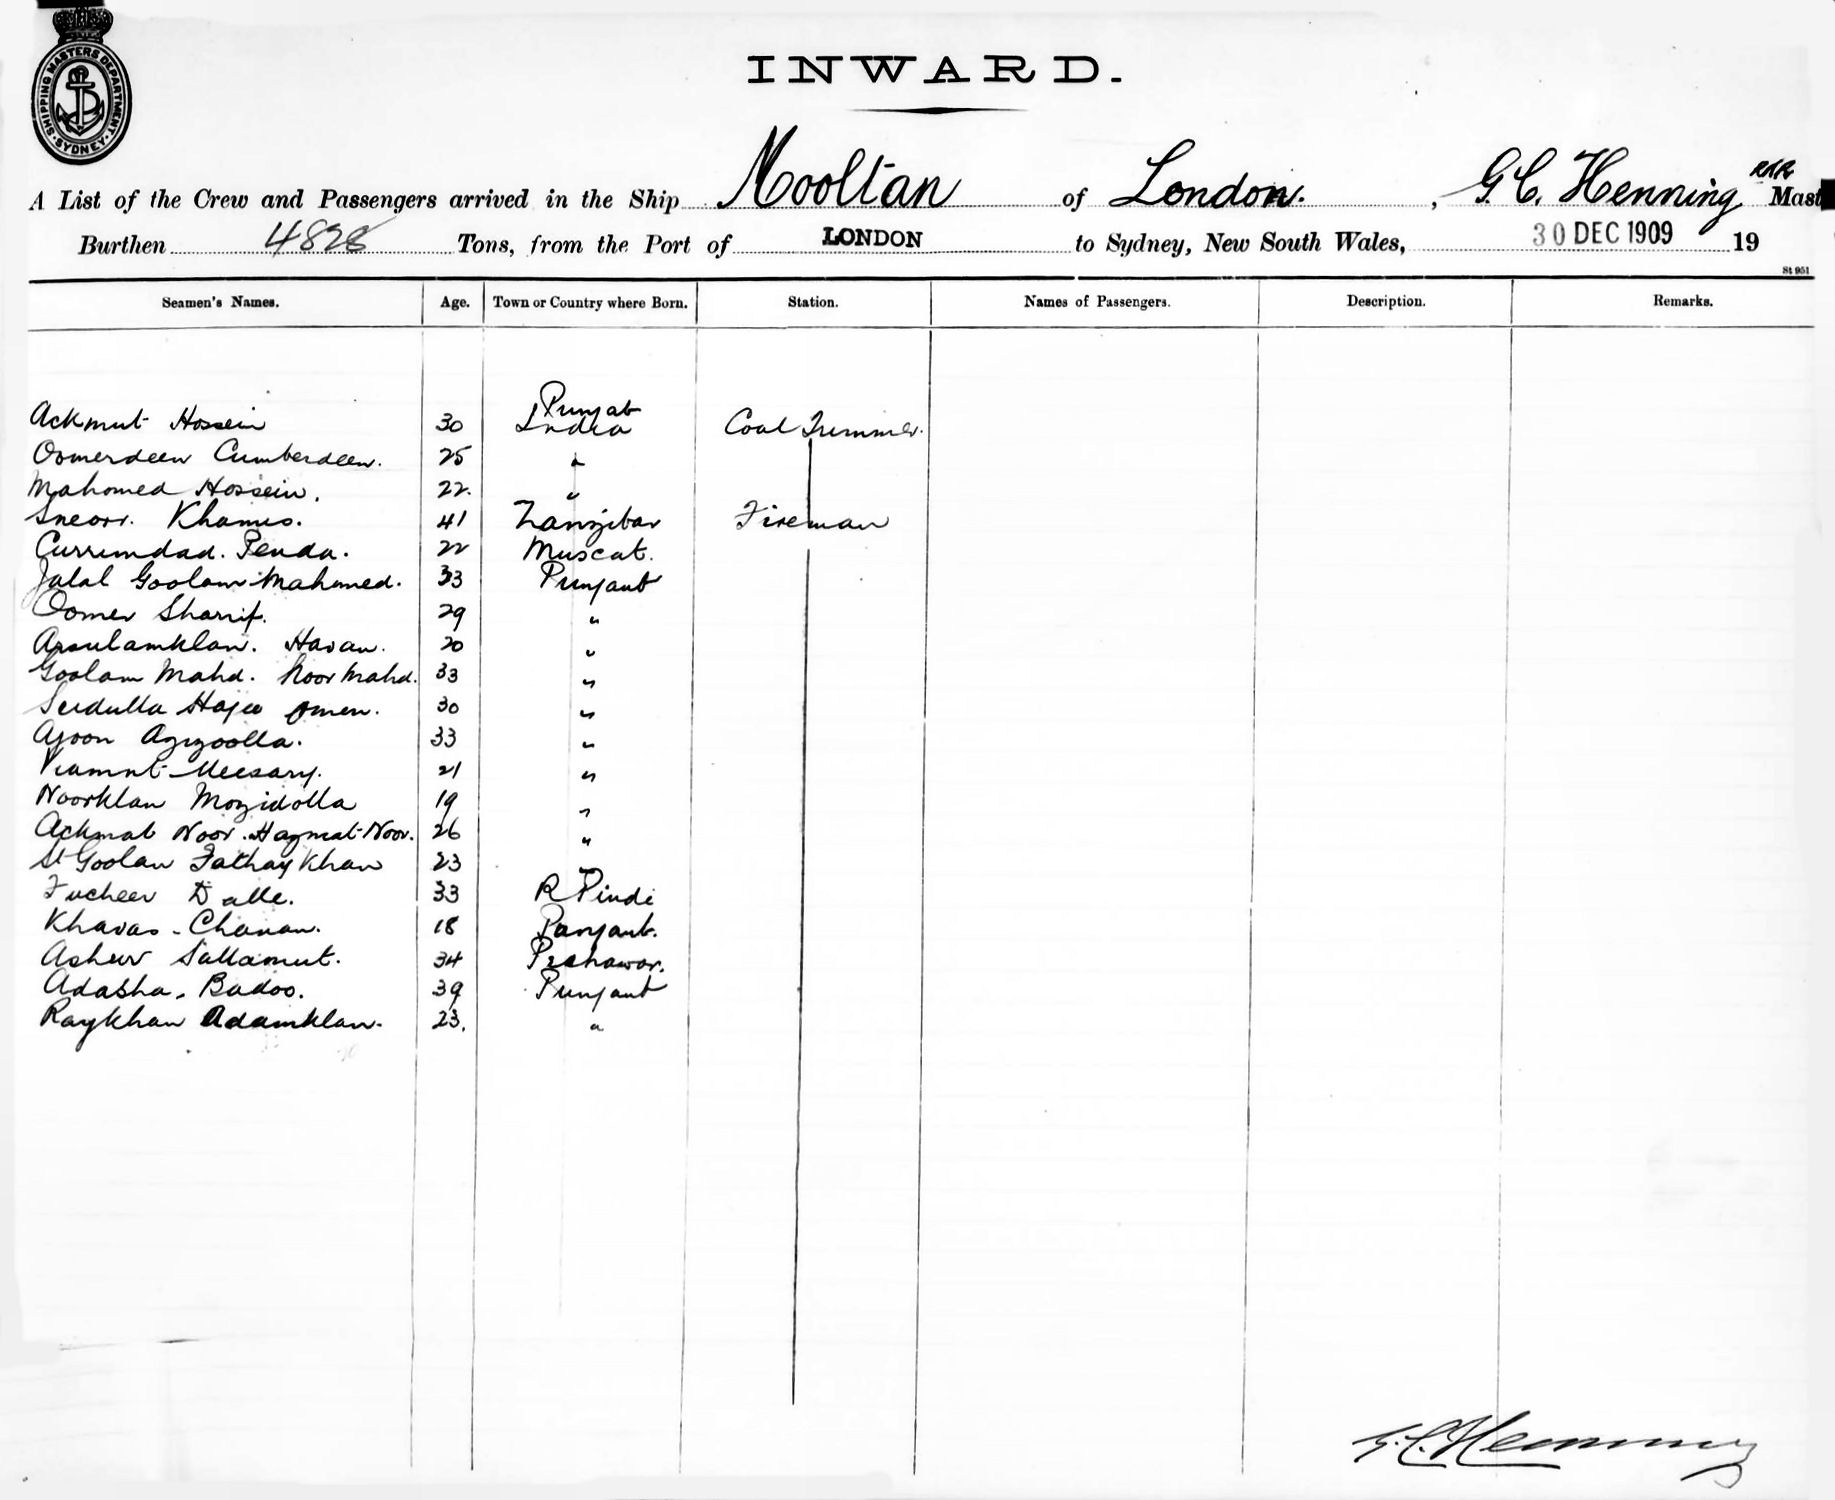 SHIPPING MASTERS DEPARTMENT
SYDNEY
INWARD.
A List of the Crew and Passengers arrived in the Ship Mooltan of London. , G. C. Henning RNR Mast
Burthen 4828 Tons, from the Port of LONDON to Sydney, New South Wales, 30 DEC 1909 19
St 951
Seamen's Names. Age. Town or Country where Born. Station. Names of Passengers. Description. Remarks.
Punjab
Ackmut Hossein 30 India Coal Trimmer.
Oomerdeen Cumberdeen. 25 "
Mahomed Hossein. 22. "
Sneorr. Khamis. 41 Zanzibar Fireman
Currimdad. Penda. 22 Muscat.
Jalal Goolam Mahomed. 33 Punjaub
Oomer Sharrif. 29 "
Arsulamklan. Havan. 20 "
Goolam Mahd. Noor Mahd. 33 "
Seidulla Hajee Omen. 30 "
Ajoon Azizoolla. 33 "
Viamnt Meesary. 21 "
Noorklan Mozidolla 19 "
Ackmat Noor. Hazmat Noor. 26 "
St Goolan Fathay Khan 23 "
Fucheer Dalle. 33 R Pindi
Khavas - Chanan. 18 Panjaub.
Asheer Sallamut. 34 Peshawar.
Adasha. Badoo. 39 Punjaub
Raykhan Adamklan. 23. "
G. C. Henning